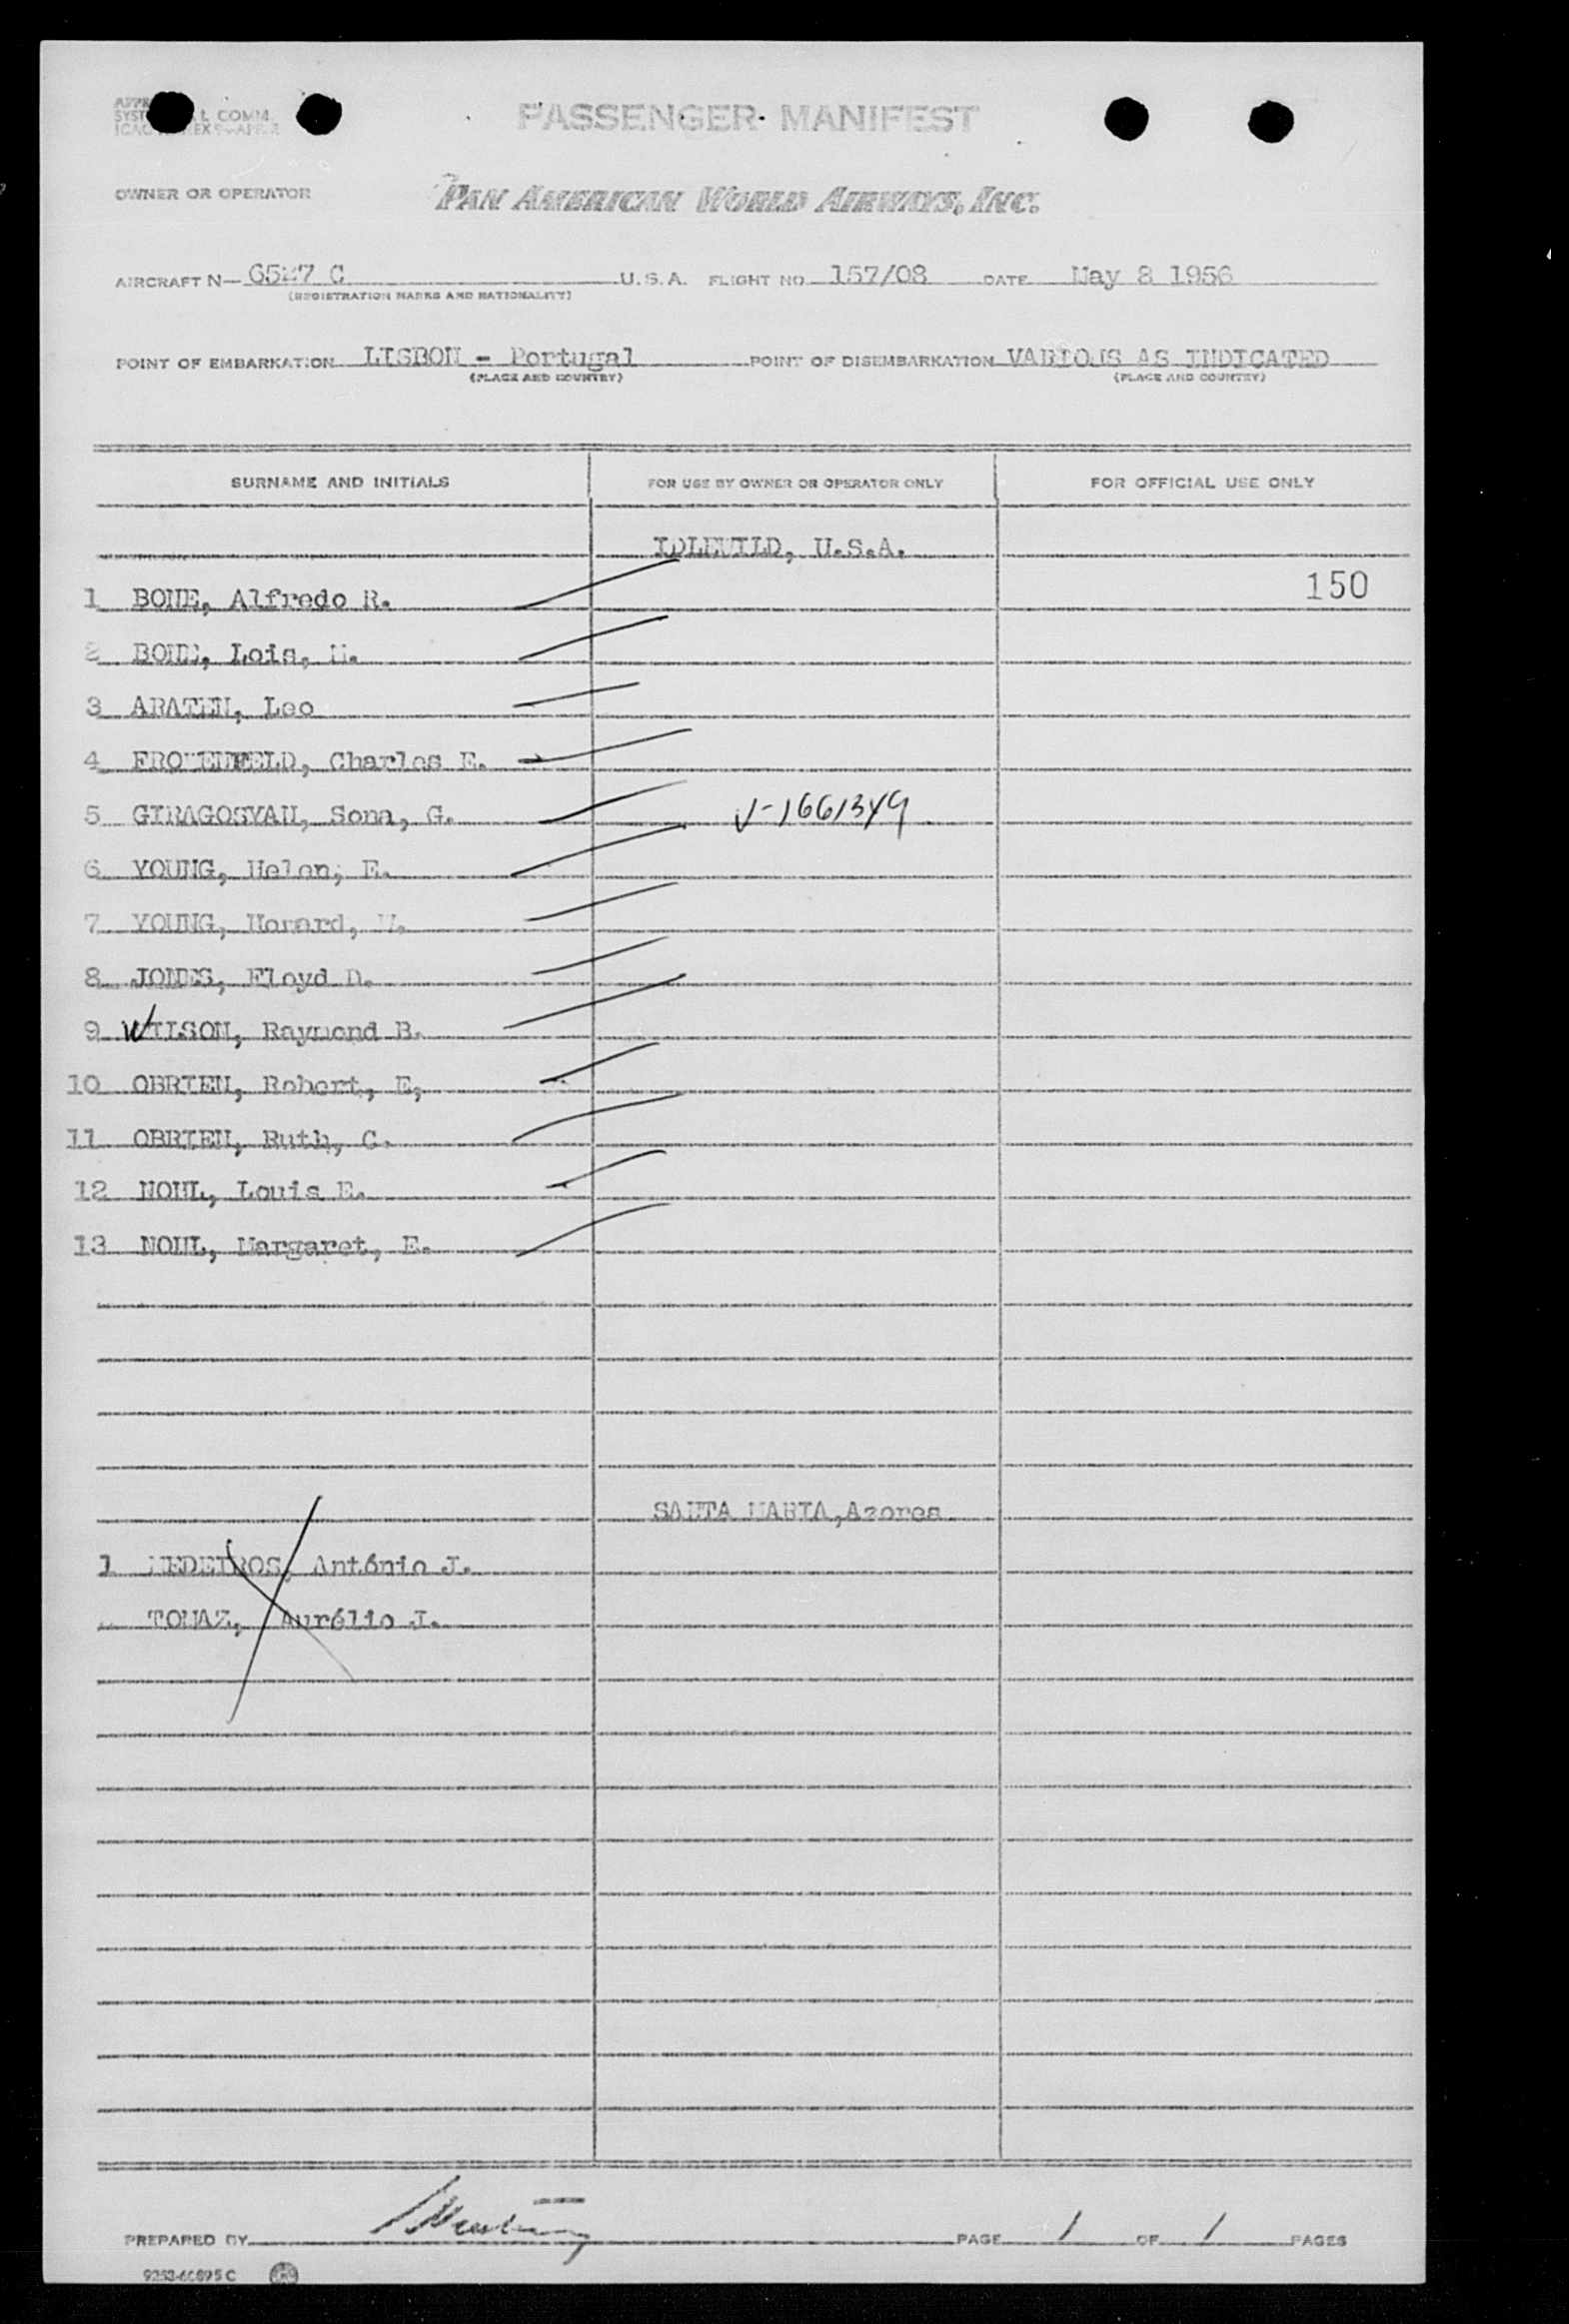 PASSENGER MANIFEST
OWNER OR OPERATOR PAN AMERICAN WORLD AIRWAYS, INC.
AIRCRAFT N- 6527 C U.S.A. FLIGHT NO. 157/08 DATE May 8 1956
(REGISTRATION MARKS AND NATIONALITY)
POINT OF EMBARKATION LISBON - Portugal POINT OF DISEMBARKATION VARIOUS AS INDICATED
(PLACE AND COUNTRY) (PLACE AND COUNTRY)
SURNAME AND INITIALS FOR USE BY OWNER OR OPERATOR ONLY FOR OFFICIAL USE ONLY
IDLEWILD, U.S.A.
150
1 Alfredo R.
2 Lois,
3 ARATEN, Leo
4 FROWENFELD, Charles E.
5 GIRAGOSYAN, Sona, G. V-1661349
6 YOUNG, Helen, E.
7 YOUNG, Howard, W.
8 JONES, Floyd D.
9 WILSON, Raymond B.
10 OBRIEN, Robert, E,
11 OBRIEN, Ruth, C.
12 NOHL, Louis E.
13 NOHL, Margaret, E.
SANTA MARIA, Azores
1 MEDEIROS, António J.
TOMAZ, Aurélio J.
PREPARED BY PAGE 1 OF 1 PAGES